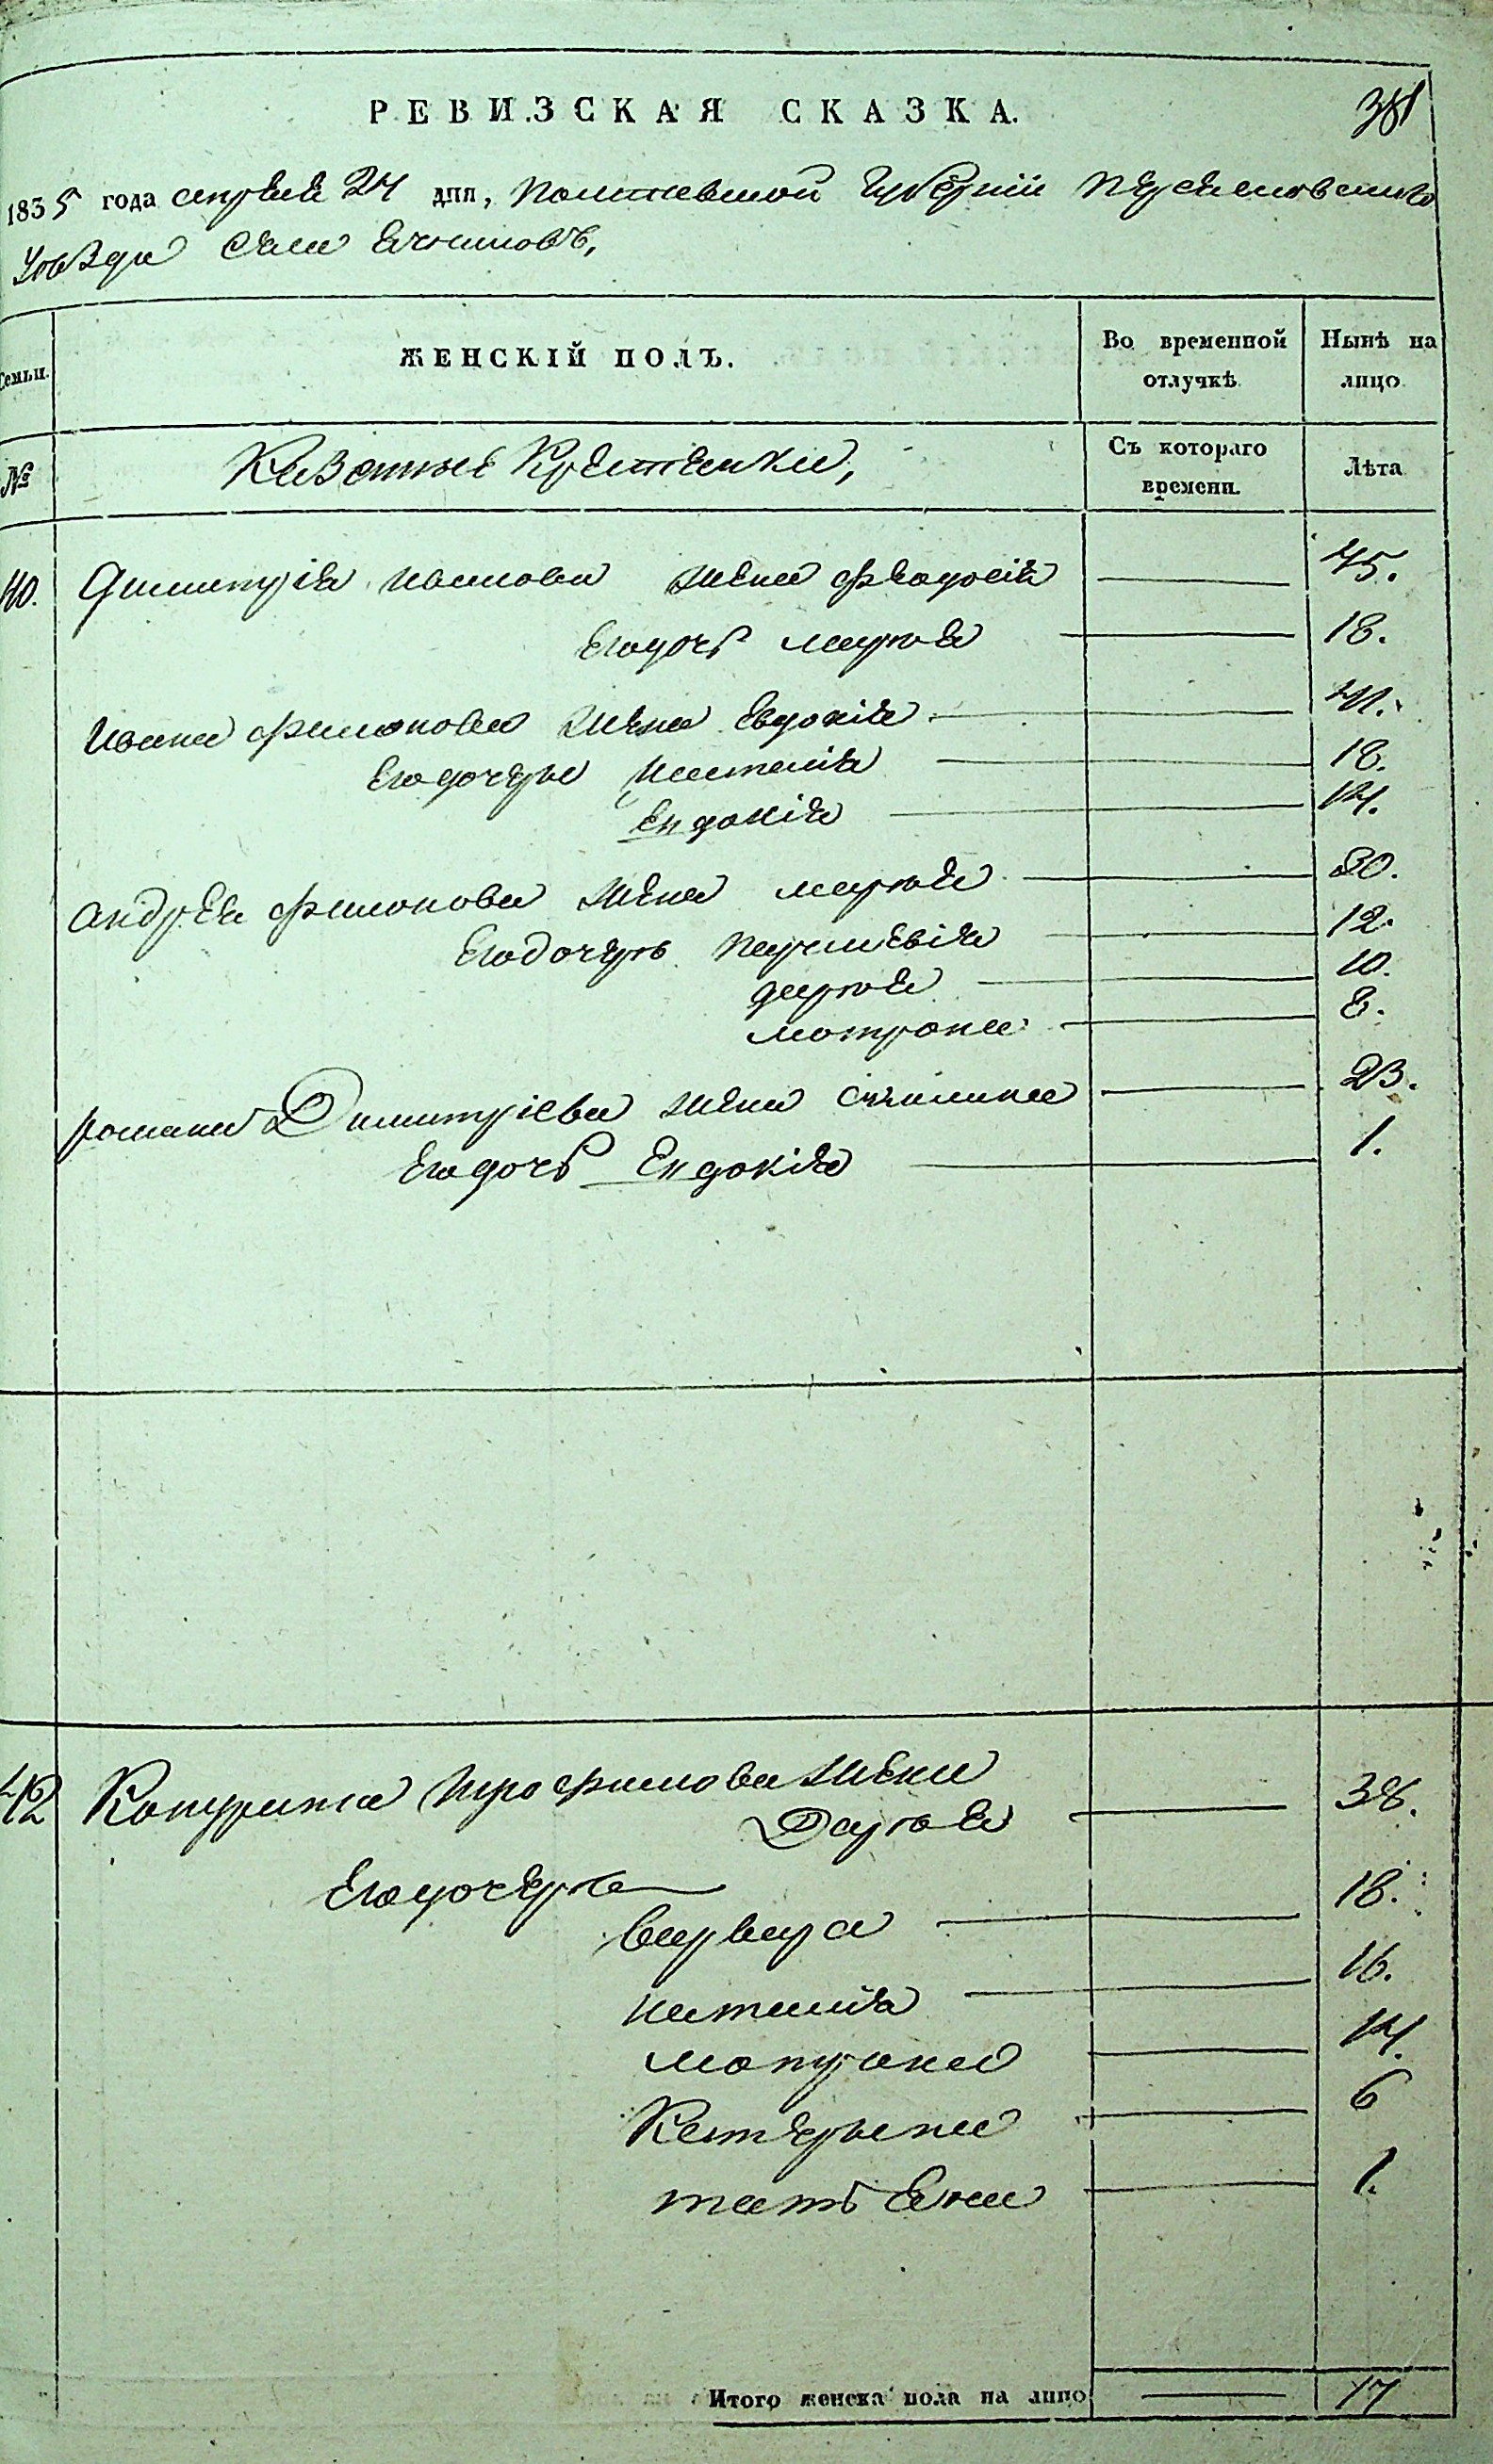 РЕВИЗСКАЯ СКАЗКА.
381
1835 года апреля 24 дня, Полтавской Губернiи Переясловскаго
Уѣзда Села
Семьи.
ЖЕНСКІЙ ПОЛЪ.
Во временной отлучкѣ
Нынѣ на лицо
№
Казенные Крестьянки,
Съ котораго времени.
Лѣта
40. Димитрія жена Феодосія 45.
Его дочь марья 18.
Ивана Филонова жена Евдокія 41.
Его дочеры наталія 18.
Евдокія 14.
Андрея Филонова жена марья 30.
Его дочеры Параскевія 12.
дарья 10.
мотрона 8.
романа Димитріева жена 23.
Его дочь Евдокія 1.
42 Кондрата трофимова жена
Дарья 38.
Его дочеры
варвара 18.
наталія 16.
мотрона 14.
Катерына 6
татьяна 1.
Итого женска пола на лицо 17